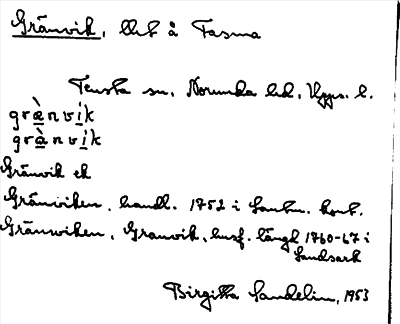 Gränvik, lht å Tasma
Tensta sn, Norunda hd, Upps. l.
grǽnvik
grànvik
Gränvik ek
Gränviken, handl. 1752 i Lantm. kont.
Gränwiken, Granvik, husf. längd 1760-67 i
Landsark
Birgitta Sandelin, 1953